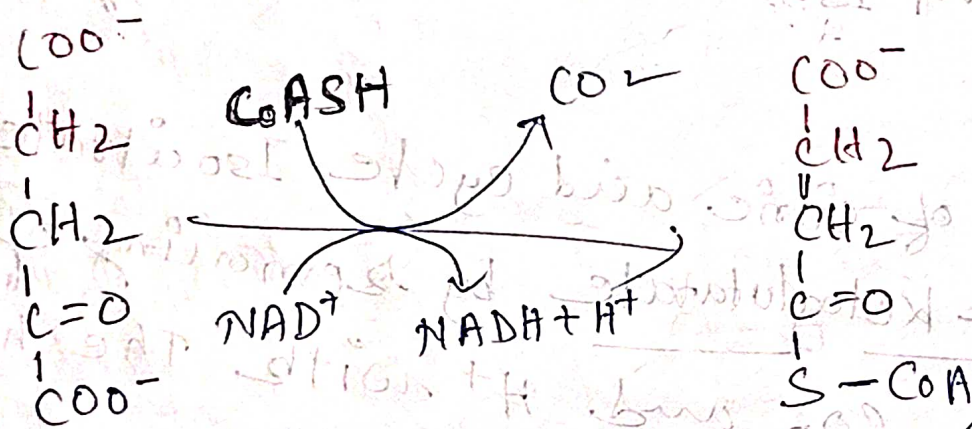 COO⁻
CH2
CH2
C=O
COO⁻
CoASH
CO2
NAD⁺
NADH + H⁺
COO⁻
CH2
CH2
C=O
S - CoA